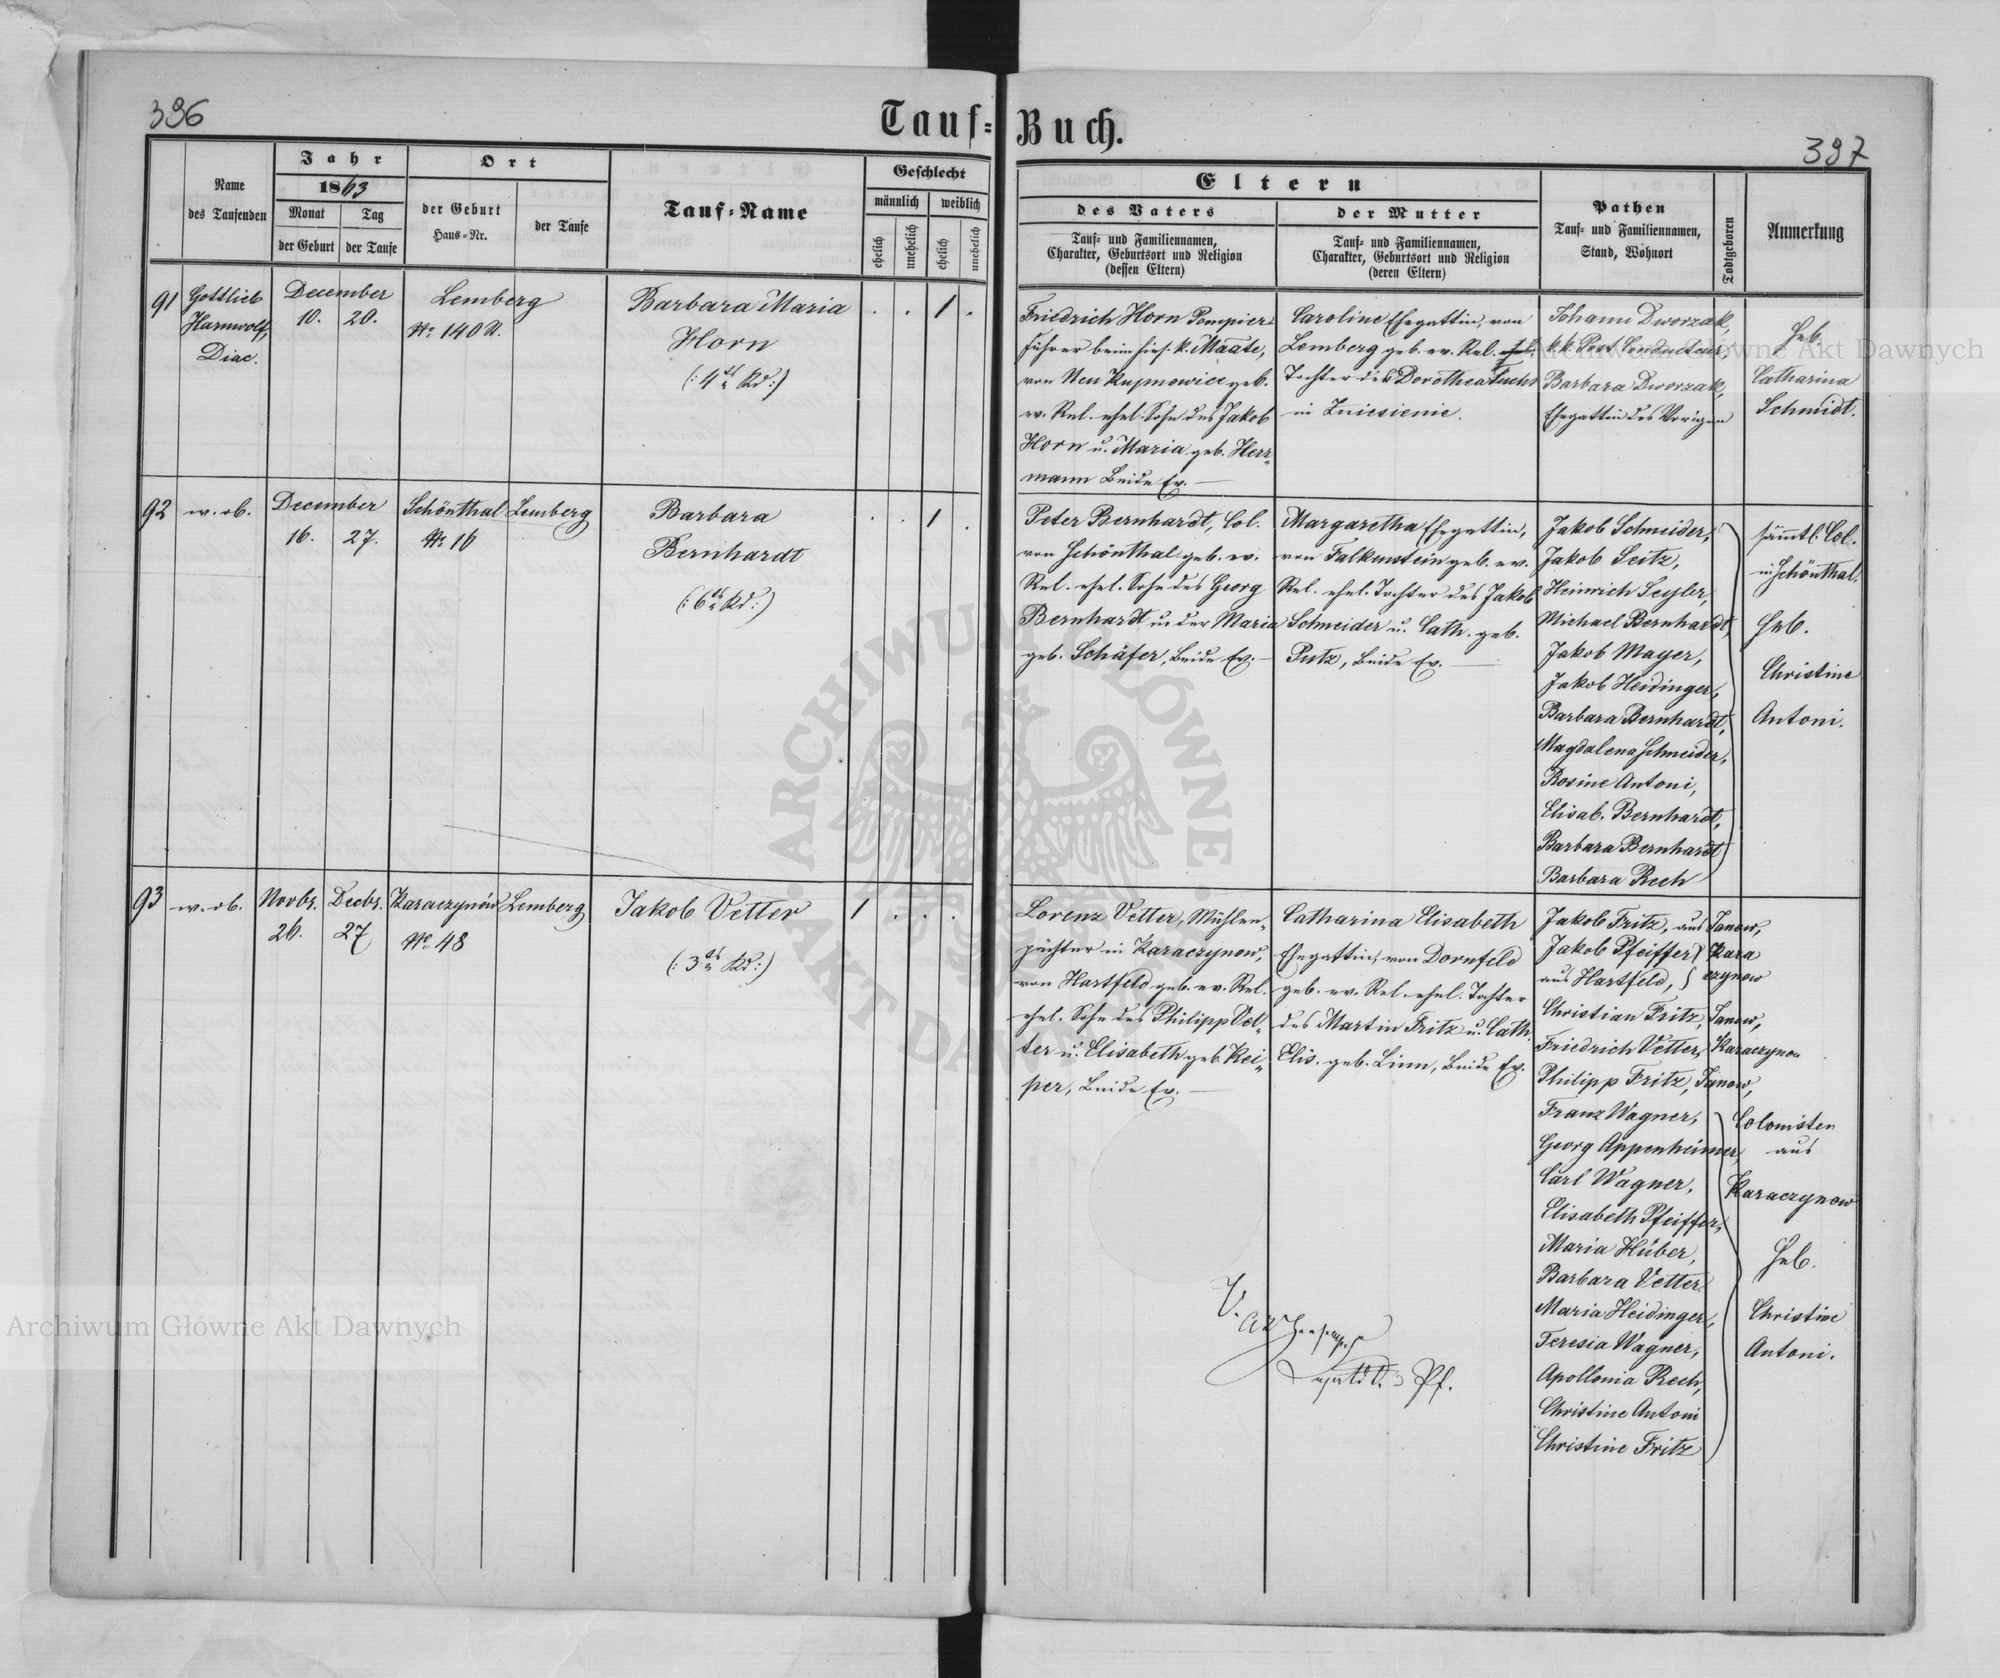 396
Tauf-Buch.
397
Name
des Taufenden
Jahr
1863
Monat
der Geburt
Tag
der Taufe
Ort
der Geburt
Haus-Nr.
der Taufe
Tauf-Name
Geschlecht
männlich
weiblich
ehelich
unehelich
ehelich
unehelich
Eltern
des Vaters
Tauf- und Familiennamen,
Charakter, Geburtsort und Religion
(dessen Eltern)
der Mutter
Tauf- und Familiennamen,
Charakter, Geburtsort und Religion
(deren Eltern)
Pathen
Tauf- und Familiennamen,
Stand, Wohnort
Todtgeboren
Anmerkung
91
Gottlieb
Harnwolf,
Diac.
December
10. 20.
Lemberg
No 140 N.
Barbara Maria
Horn
(: 4 Kd :)
. . 1 .
Friedrich Horn Pompier-
Führer beim hies. k.
von Neu Kupnowice geb.
ev. Rel. ehel. Sohn des Jakob
Horn u. Maria geb. Herr-
mann Beide Ev.
Caroline Ehegattin, von
Lemberg geb. ev. Rel.
Tochter des Dorothea Fuchs
in Zniesienie.
Johann Dworzak,
k.k. Post Conducteur,
Barbara Dworzak,
Ehegattin des Vorigen
Heb.
Catharina
Schmidt.
92
w. ob.
December
16. 27.
Schönthal
No 16
Lemberg
Barbara
Bernhardt
(: 6 Kd :)
. . 1 .
Peter Bernhardt, Col.
von Schönthal geb. ev.
Rel. ehel. Sohn des Georg
Bernhardt u der Maria
geb. Schäfer, Beide Ev.
Margaretha Ehegattin,
von Falkenstein geb. ev.
Rel. ehel. Tochter des Jakob
Schneider u. Cath. geb.
Putz, Beide Ev.
Jakob Schneider,
Jakob Seitz,
Heinrich Seyler,
Michael Bernhardt,
Jakob Mayer,
Jakob Heidinger,
Barbara Bernhardt,
Magdalena Schneider,
Rosine Antoni,
Elisab. Bernhardt,
Barbara Bernhardt
Barbara Rech
sämmtl. Col.
in Schönthal.
Heb.
Christine
Antoni.
93
w. ob.
Novbr.
26.
Decbr.
27
Karaczynów
No 48
Lemberg
Jakob Vetter
(: 3 Kd :)
1 . . .
Lorenz Vetter, Mühlen-
pächter in Karaczynow,
von Hartfeld geb. ev. Rel.
ehel. Sohn des Philipp Vet-
ter u. Elisabeth geb. Kei-
per, Beide Ev.
Catharina Elisabeth
Ehegattin, von Dornfeld
geb. ev. Rel. ehel. Tochter
des Martin Fritz u. Cath.
Elis. geb. Linn, Beide Ev.
Jakob Fritz, aus Janow,
Jakob Pfeiffer Kara
aus Hartfeld, czynow
Christian Fritz, Janow,
Friedrich Vetter, Karaczynow
Philipp Fritz, Janow,
Franz Wagner,
Georg Appenheimer,
Carl Wagner,
Elisabeth Pfeiffer,
Maria Huber,
Barbara Vetter
Maria Heidinger,
Teresia Wagner,
Apollonia Rech,
Christine Antoni
Christine Fritz
Colonisten
aus
Karaczynow
Heb.
Christine
Antoni.
V.
Pf.
Archiwum Główne Akt Dawnych
Archiwum Główne Akt Dawnych
ARCHIWUM GŁÓWNE AKT DAWNYCH